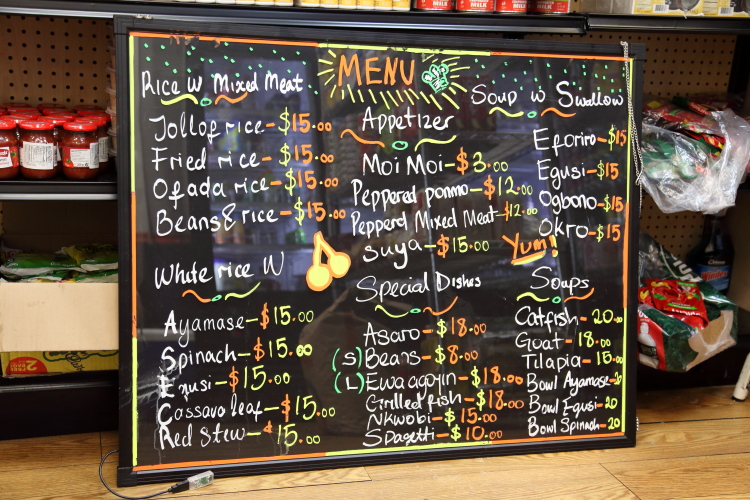 MENU
Rice W Mixed Meat
Jollof rice-$15.00
Fried rice-$15.00
Ofada rice-$15.00
Beans & rice-$15.00
White rice W
Ayamase-$15.00
Spinach-$15.00
Egusi-$15.00
Cassava leaf-$15.00
Red Stew-$15.00
Appetizer
Moi Moi-$3.00
Peppered ponmo-$12.00
Pepperd Mixed Meat-$12.00
Suya-$15.00
Yum!
Special Dishes
Asaro-$18.00
(S) Beans-$8.00
(L) Ewa agoyin-$18.00
Grilled fish-$18.00
Nkwobi-$15.00
Spagetti-$10.00
Soup W Swallow
Eforiro-$15
Egusi-$15
Ogbono-$15
Okro-$15
Soups
Catfish-20.00
Goat-18.00
Tilapia-15.00
Bowl Ayamase-20
Bowl Egusi-20
Bowl Spinach-20